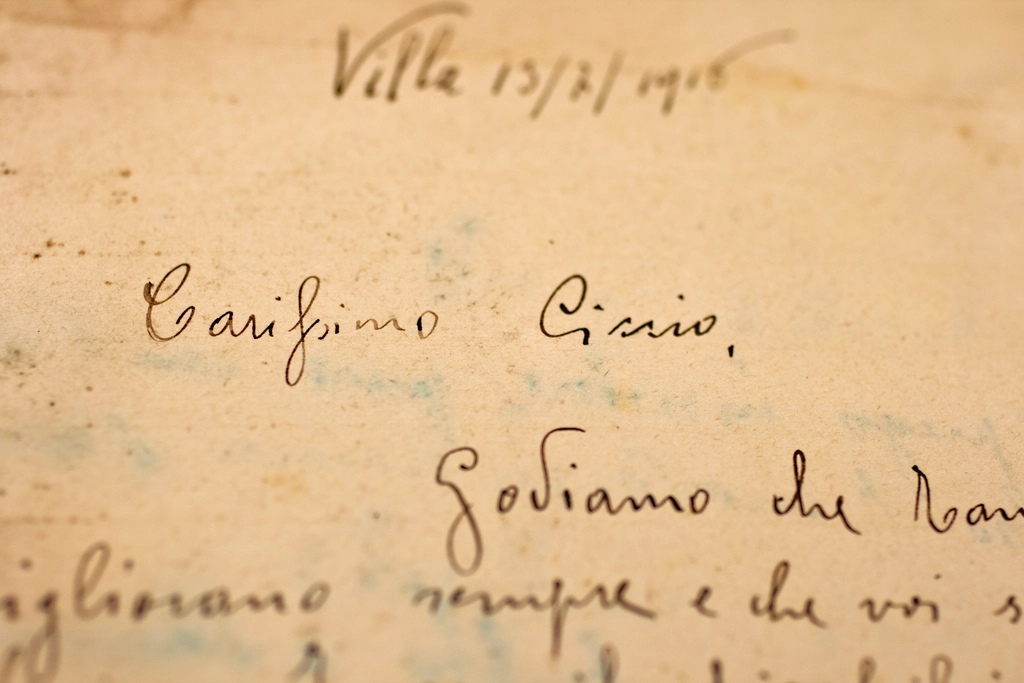 Villa 13/7/1916
Carissimo Ciccio,
Godiamo che
sempre e che voi